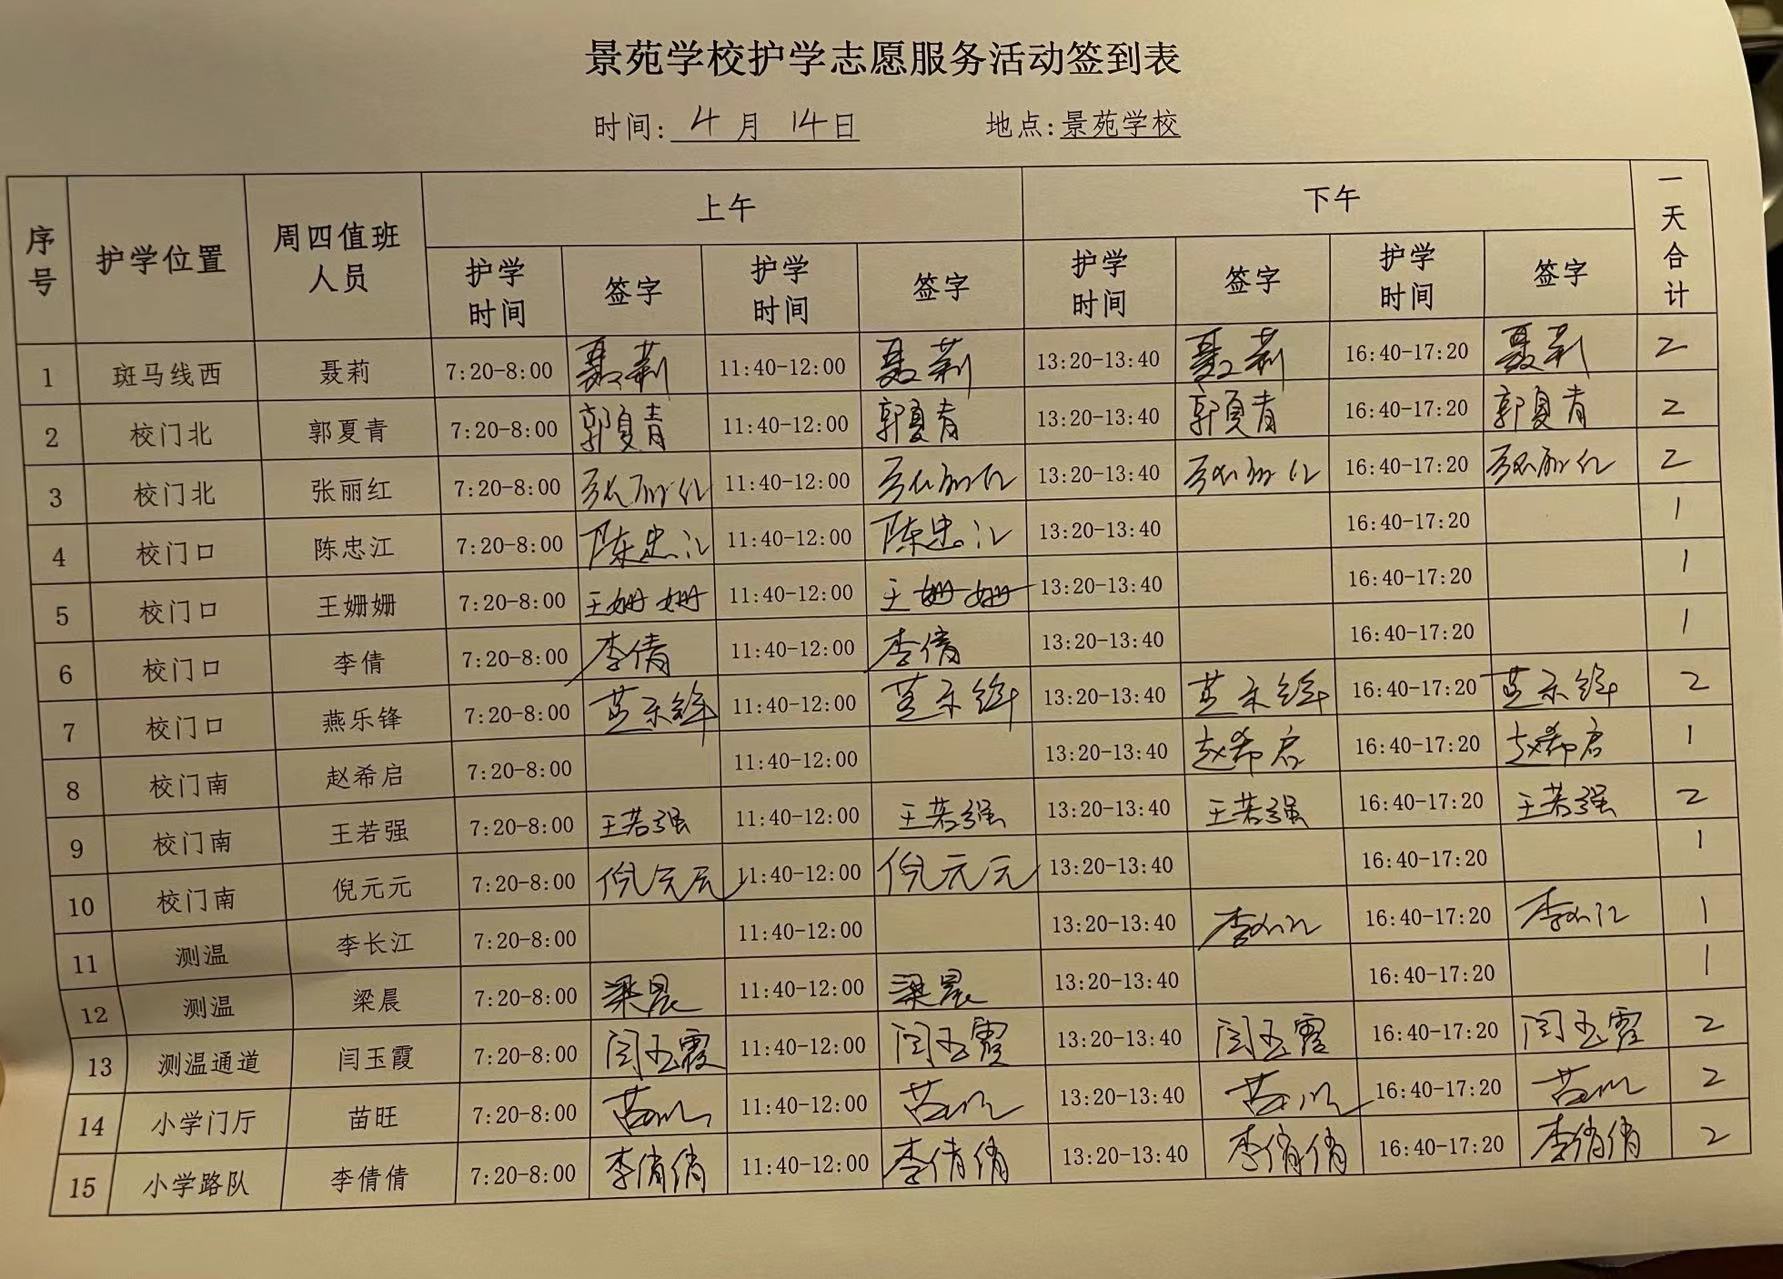 景苑学校护学志愿服务活动签到表
时间: 4 月 14 日 地点: 景苑学校
序号 护学位置 周四值班人员 上午 下午 一天合计
护学时间 签字 护学时间 签字 护学时间 签字 护学时间 签字
1 斑马线西 聂莉 7:20-8:00 聂莉 11:40-12:00 聂莉 13:20-13:40 聂莉 16:40-17:20 聂莉 2
2 校门北 郭夏青 7:20-8:00 郭夏青 11:40-12:00 郭夏青 13:20-13:40 郭夏青 16:40-17:20 郭夏青 2
3 校门北 张丽红 7:20-8:00 张丽红 11:40-12:00 张丽红 13:20-13:40 张丽红 16:40-17:20 张丽红 2
4 校门口 陈忠江 7:20-8:00 陈忠江 11:40-12:00 陈忠江 13:20-13:40 16:40-17:20 1
5 校门口 王姗姗 7:20-8:00 王姗姗 11:40-12:00 王姗姗 13:20-13:40 16:40-17:20 1
6 校门口 李倩 7:20-8:00 李倩 11:40-12:00 李倩 13:20-13:40 16:40-17:20 1
7 校门口 燕乐锋 7:20-8:00 燕乐锋 11:40-12:00 燕乐锋 13:20-13:40 燕乐锋 16:40-17:20 燕乐锋 2
8 校门南 赵希启 7:20-8:00 11:40-12:00 13:20-13:40 赵希启 16:40-17:20 赵希启 1
9 校门南 王若强 7:20-8:00 王若强 11:40-12:00 王若强 13:20-13:40 王若强 16:40-17:20 王若强 2
10 校门南 倪元元 7:20-8:00 倪元元 11:40-12:00 倪元元 13:20-13:40 16:40-17:20 1
11 测温 李长江 7:20-8:00 11:40-12:00 13:20-13:40 李长江 16:40-17:20 李长江 1
12 测温 梁晨 7:20-8:00 梁晨 11:40-12:00 梁晨 13:20-13:40 16:40-17:20 1
13 测温通道 闫玉霞 7:20-8:00 闫玉霞 11:40-12:00 闫玉霞 13:20-13:40 闫玉霞 16:40-17:20 闫玉霞 2
14 小学门厅 苗旺 7:20-8:00 苗旺 11:40-12:00 苗旺 13:20-13:40 苗旺 16:40-17:20 苗旺 2
15 小学路队 李倩倩 7:20-8:00 李倩倩 11:40-12:00 李倩倩 13:20-13:40 李倩倩 16:40-17:20 李倩倩 2